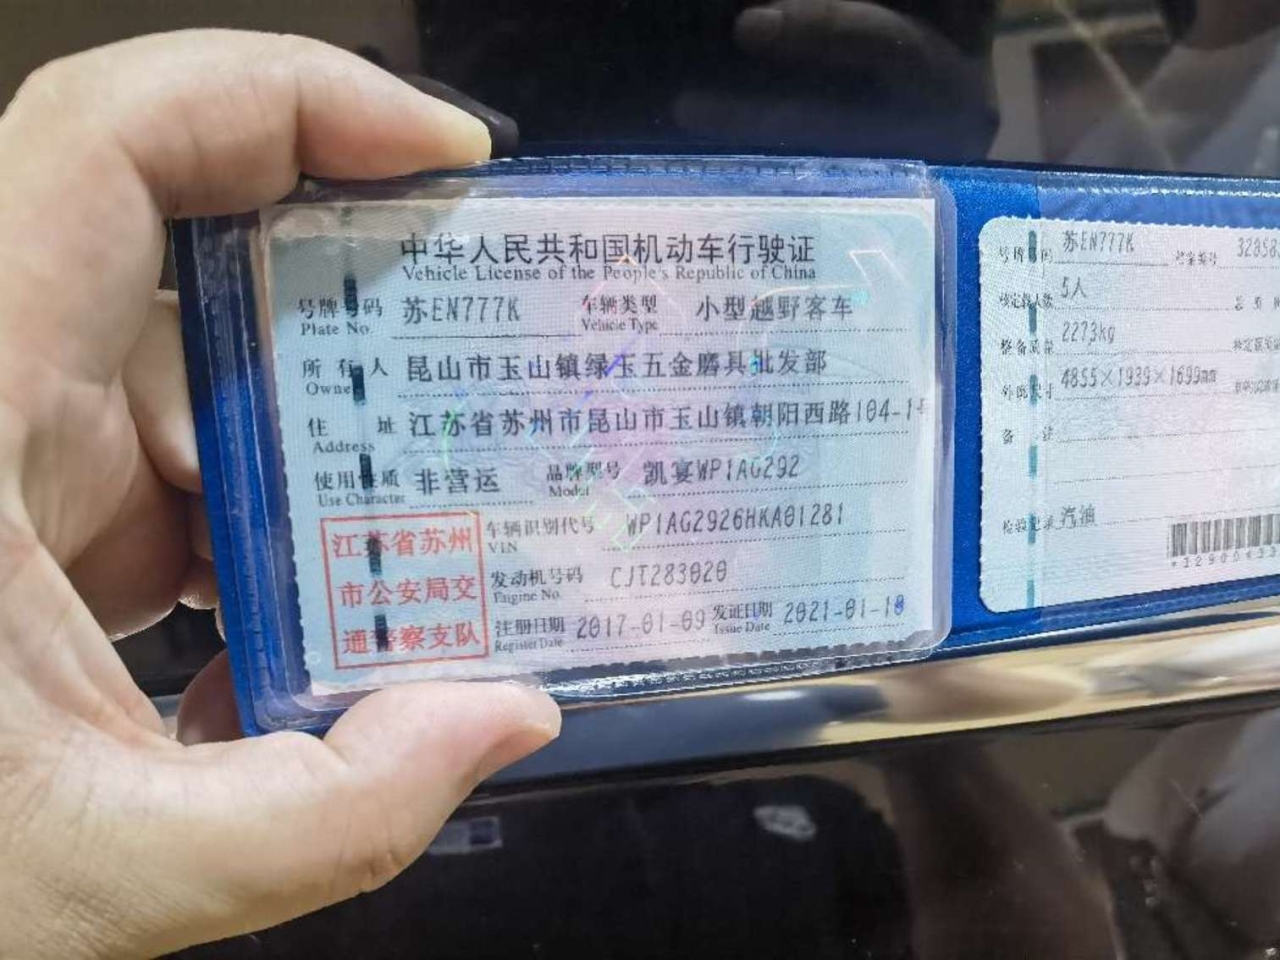 中华人民共和国机动车行驶证
Vehicle License of the People's Republic of China
号牌号码 苏EN777K 车辆类型 小型越野客车
Plate No. Vehicle Type
所有人 昆山市玉山镇绿玉五金磨具批发部
Owner
住址 江苏省苏州市昆山市玉山镇朝阳西路104-1号
Address
使用性质 非营运 品牌型号 凯宴WP1AG292
Use Character Model
江苏省苏州
市公安局交
通警察支队
车辆识别代号 WP1AG2926HKA01281
VIN
发动机号码 CJT283020
Engine No.
注册日期 2017-01-09 发证日期 2021-01-18
Register Date Issue Date
号牌号码 苏EN777K 档案编号
核定载人数 5人
整备质量 2273kg
外廓尺寸 4855×1939×1699mm
备注
检验记录 汽油